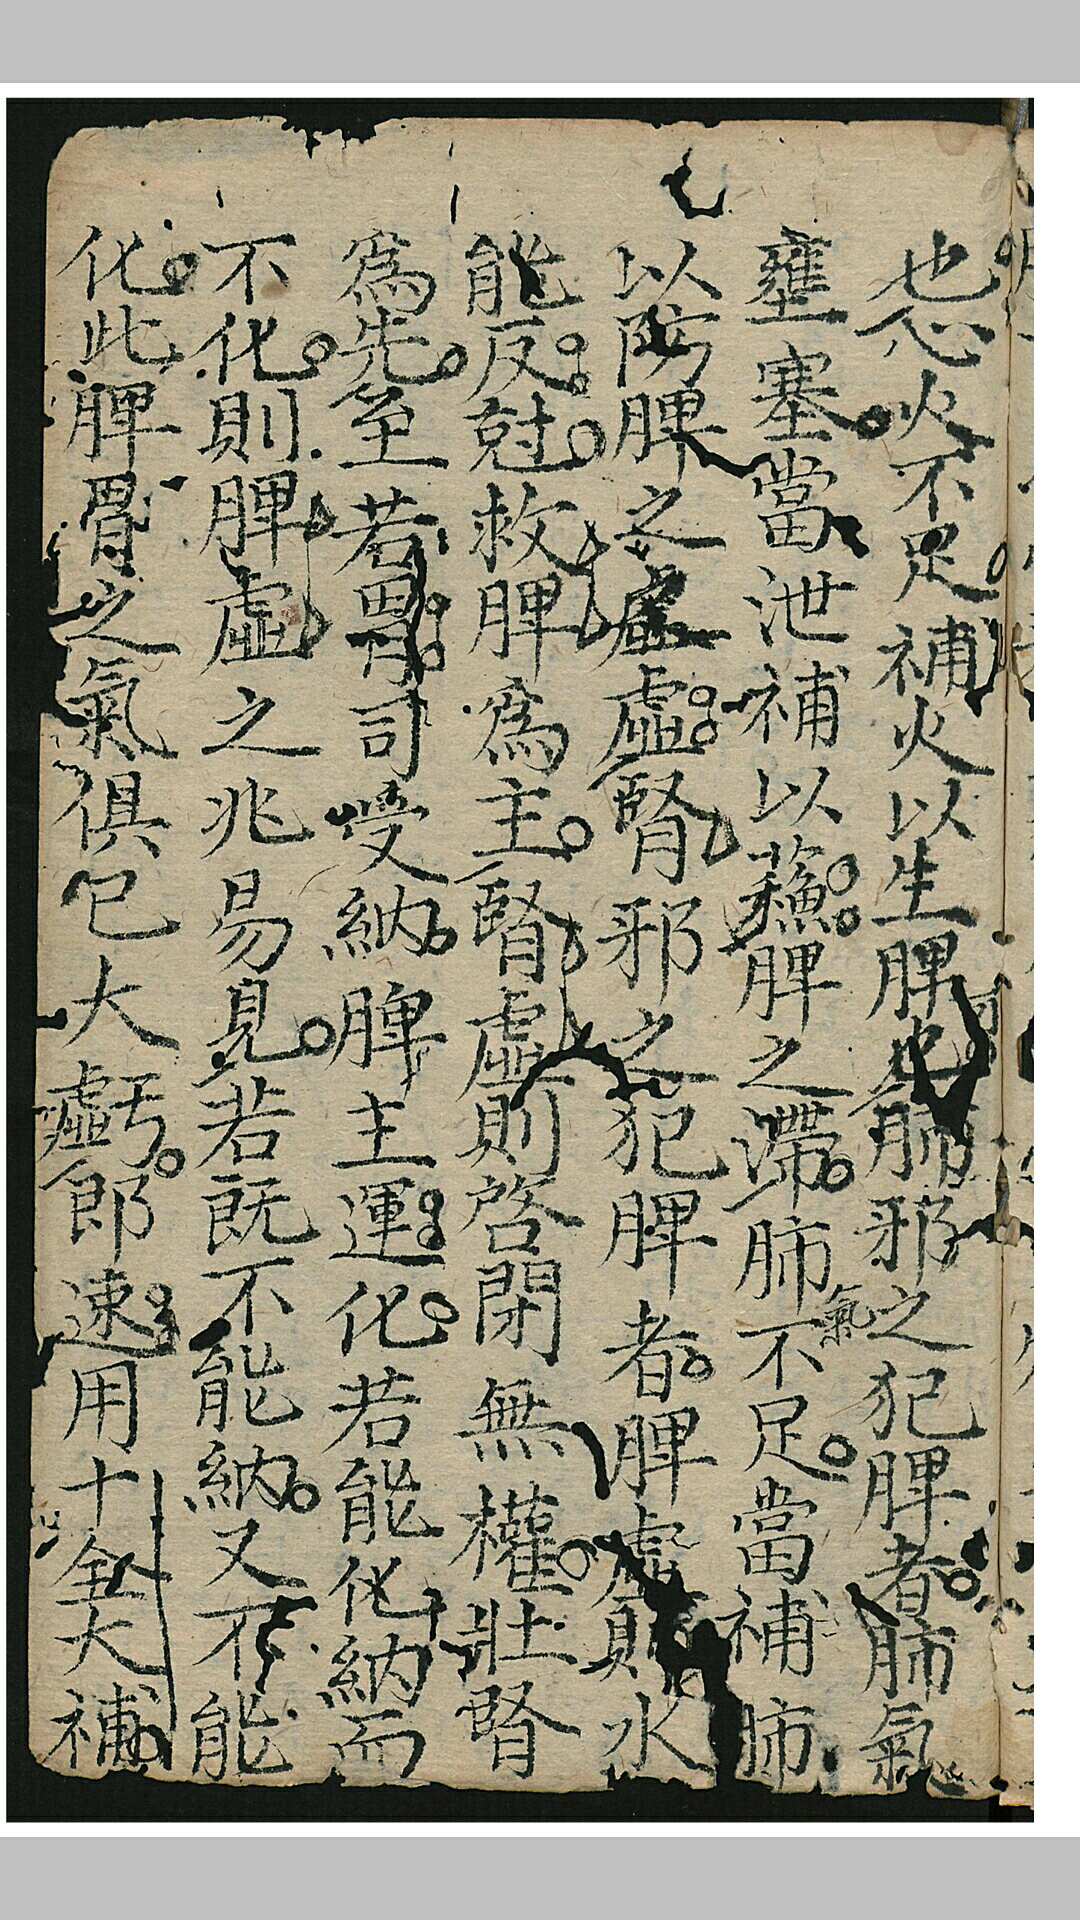 也心火不足補火以生脾也肺邪之犯脾者肺氣
壅塞當泄補以蘓脾之滯肺氣不足當補肺
以防脾之虛虛腎邪之犯脾者脾虛則水
能反尅救脾爲主腎虛則啓閉無權壯腎
爲先至若胃司受納脾主運化若能化納而
不化則脾虛之兆易見若既不能納又不能
化此脾胃之氣俱已大虧虛即速用十全大補